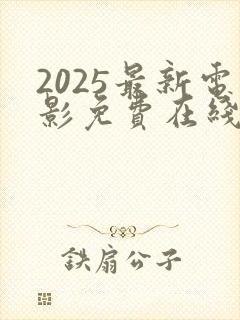 2025最新電
影免費在綫
鉄扇公子